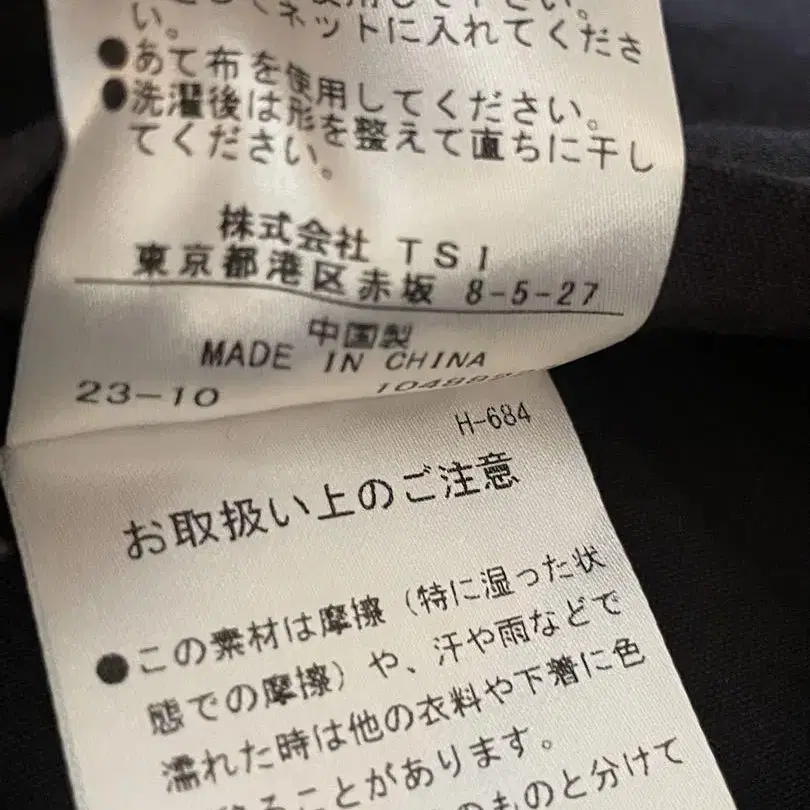 い。
ネットに入れてくださ
●あて布を使用してください。
●洗濯後は形を整えて直ちに干し
てください。
株式会社 TSI
東京都港区赤坂 8-5-27
中国製
MADE IN CHINA
23-10
H-684
お取扱い上のご注意
●この素材は摩擦（特に湿った状
態での摩擦）や、汗や雨などで
濡れた時は他の衣料や下着に色
ことがあります。
のものと分けて